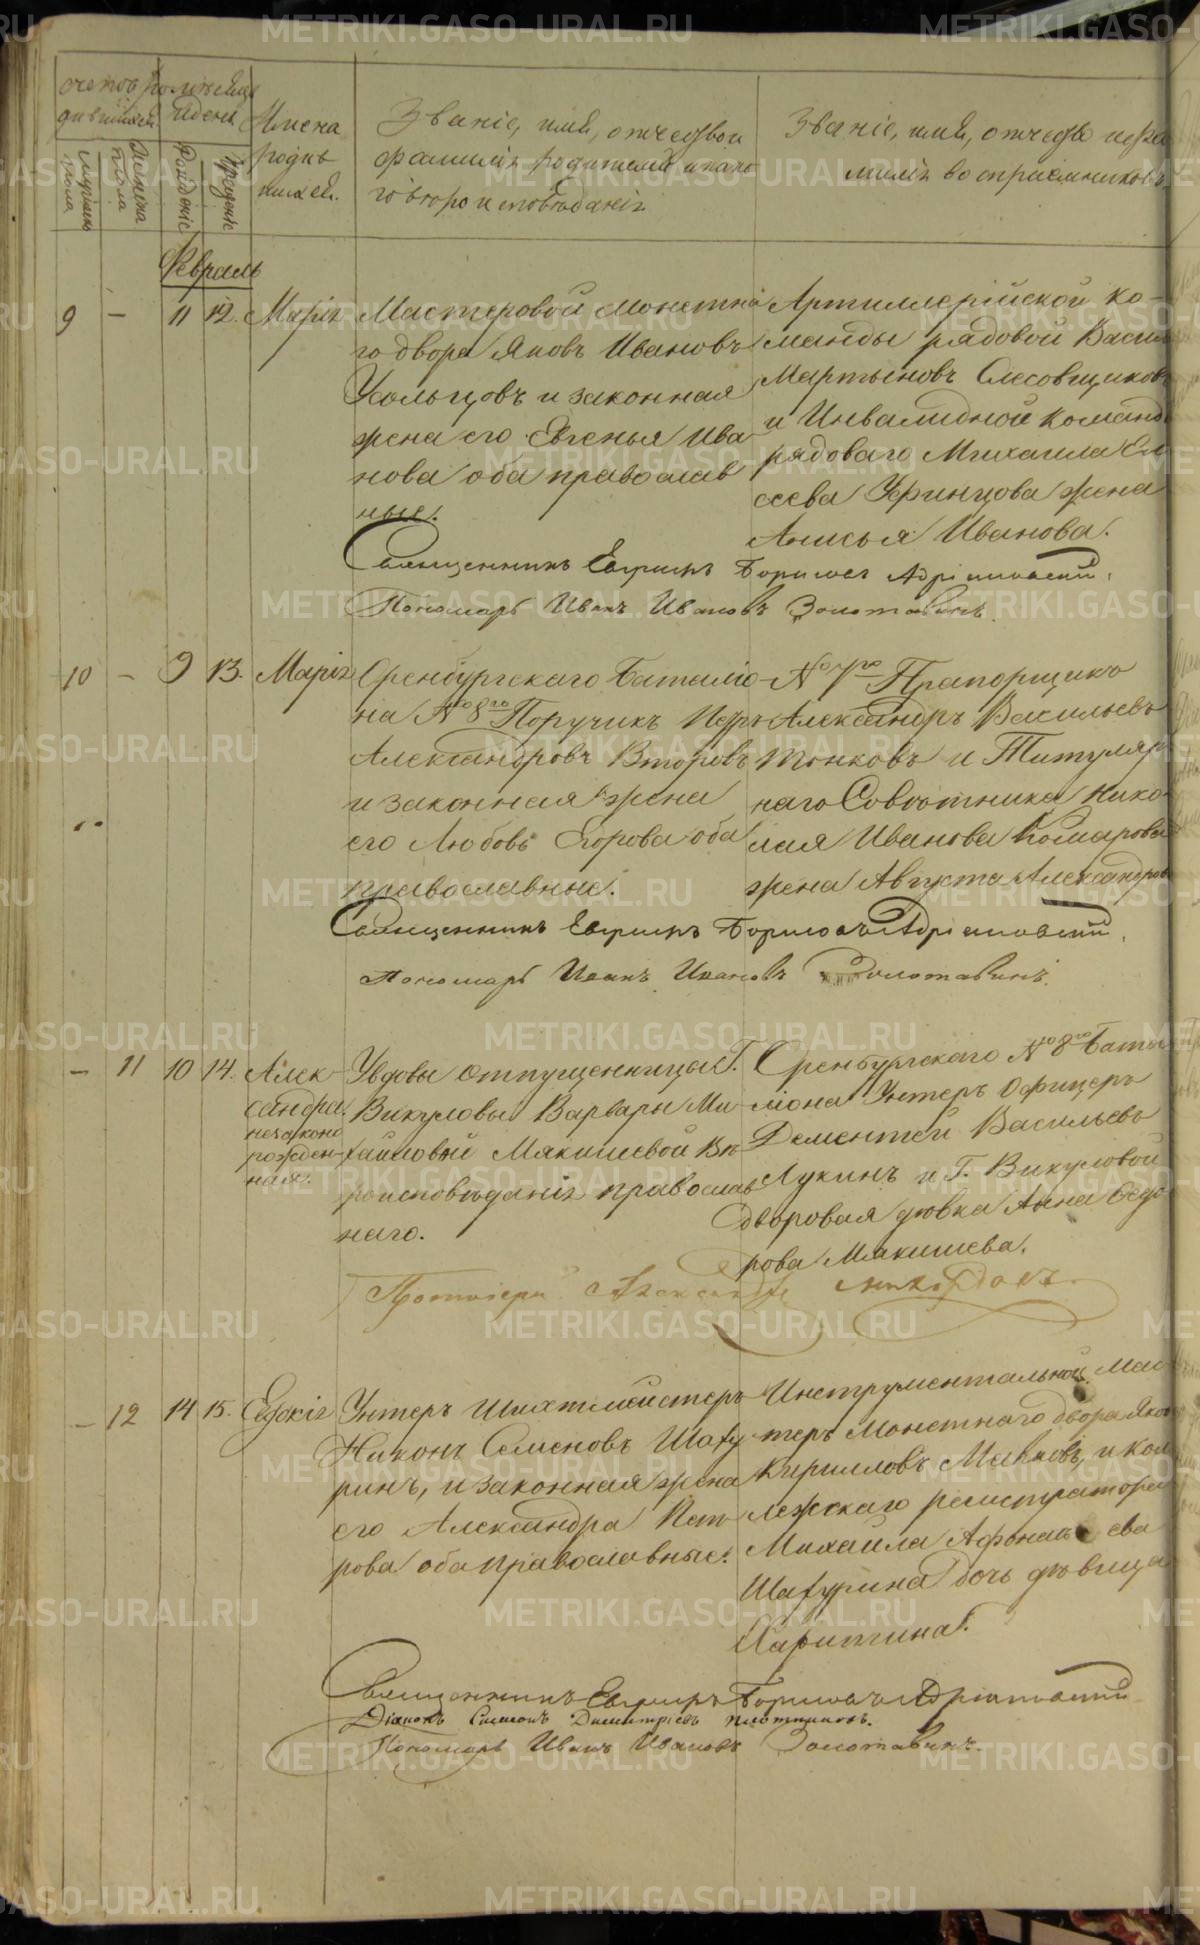 счетъ ро-
дившихся.
мужеска
пола
женска
пола
мѣсяцъ
и день
Рожденіе
Крещеніе
Имена
родив
шихся.
Званіе, имя, отчество и
фамилія родителей и како
го вѣроисповѣданія
Званіе, имя, отчество и фа
милія воспріемниковъ
Февраль
9 — 11 12. Марія
Мастеровой Монетна
го двора Яковъ Ивановъ
Усольцовъ и законная
жена его Евгенья Ива
нова оба православ
ные.
Артиллерійской ко-
манды рядовой Васил
Мартыновъ
и Инвалидной команд
рядоваго Михаила Ели
сеева жена
Анисья Иванова.
Священникъ Борисовъ Адріановскій.
Пономарь Иванъ Ивановъ Золотавинъ.
10 — 9 13. Марія
Оренбургскаго Баталіо
на №8го Поручикъ Петръ
Александровъ Второвъ
и законная жена
его Любовь Егорова оба
православные.
№ 7го Прапорщикъ
Александръ Васильевъ
Тонковъ и Титуляр
наго Совѣтника Нико
лая Иванова Комарова
жена Августа Александров
Священникъ Борисовъ Адріановскій.
Пономарь Иванъ Ивановъ Золотавинъ.
— 11 10 14. Алек
сандра
незаконо
рожден-
ная.
Удовы отпущенницы Г.
Викуловы Варвары Ми
хайловой Мякишевой Вѣ
роисповѣданія православ
наго.
Оренбургскаго №8го Бата
ліона Унтеръ Офицеръ
Дементей Васильевъ
Лукинъ и Г. Викуловой
дворовая дѣвка Анна Ѳедо
рова Мякишева.
Протоіерей Александръ
— 12 14 15. Евдокія
Унтеръ Шихтмейстеръ
Никонъ Семеновъ Шату
ринъ, и законная жена
его Александра Пет
рова оба православные.
Инструментальной Мас
теръ Монетнаго двора Яков
Кирилловъ и Кол
лежскаго регистратора
Михаила Афонасьева
Шатурина дочь дѣвица
Харитина.
Священникъ Борисовъ Адріановскій
Діаконъ Симеонъ Димитріевъ Плотниковъ.
Пономарь Иванъ Ивановъ Золотавинъ.
METRIKI.GASO-URAL.RU